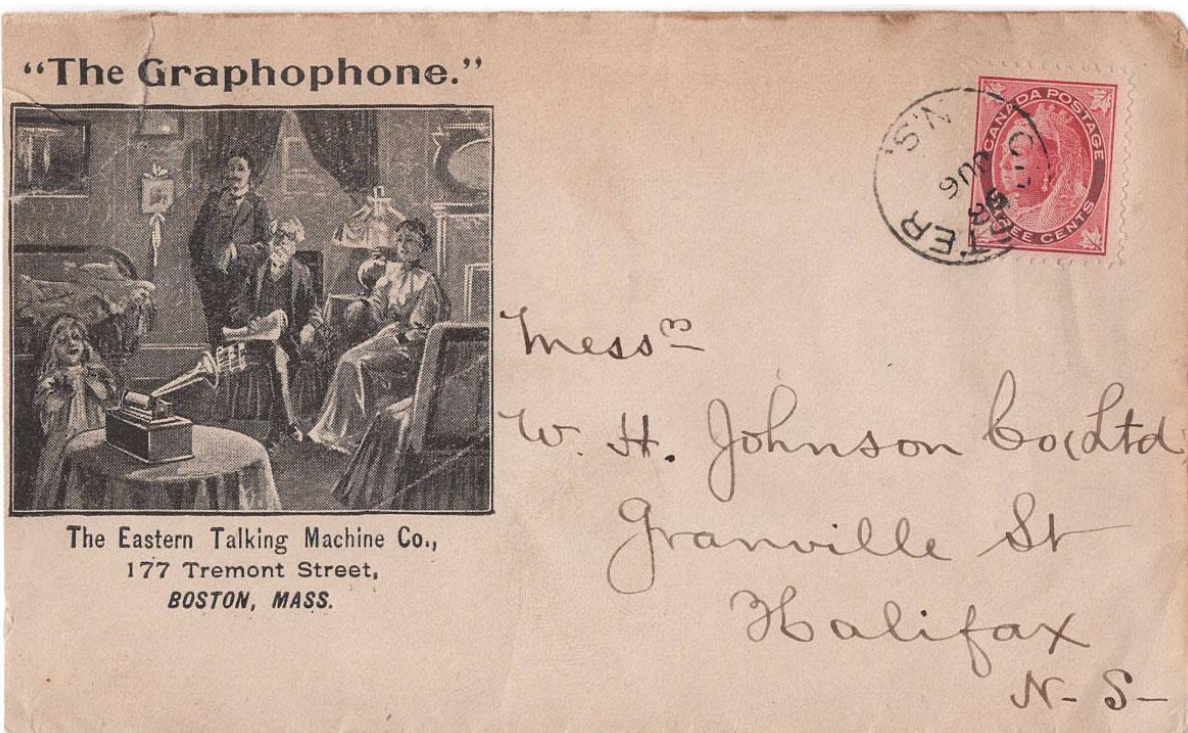 "The Graphophone."
The Eastern Talking Machine Co.,
177 Tremont Street,
BOSTON, MASS.
CANADA POSTAGE
THREE CENTS
N.S.
TER
Messrs
W. H. Johnson Co (Ltd
Granville St
Halifax
N-S-